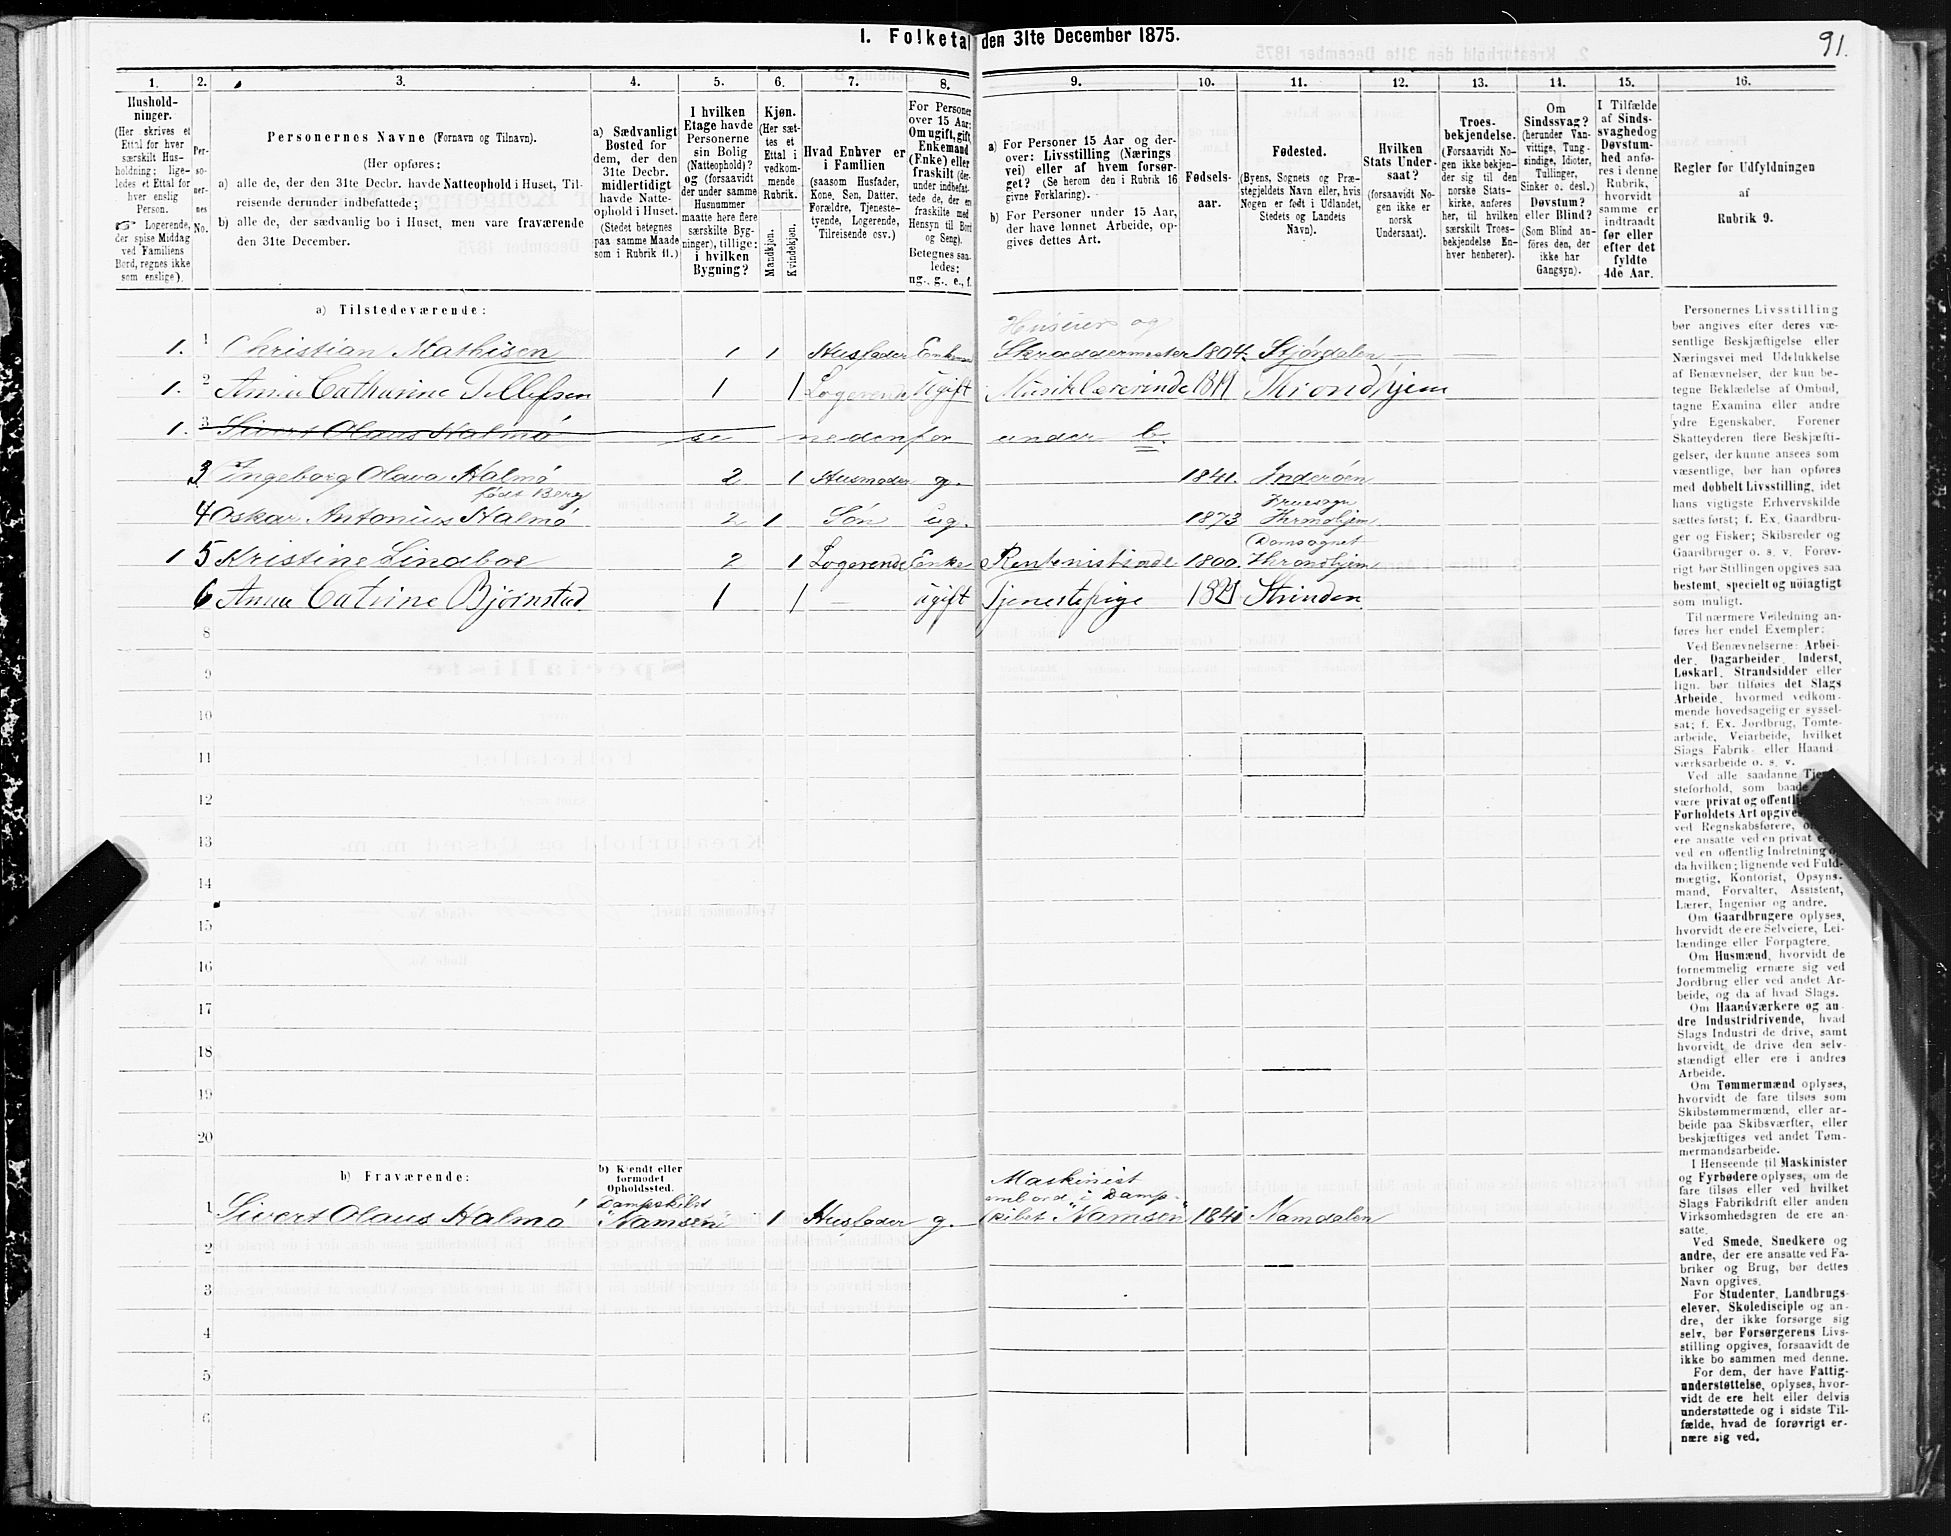 I. Folketal den 31te December 1875.
91.
1.
2.
3.
4.
5.
6.
7.
8.
9.
10.
11.
12.
13.
14.
15.
16.
Husholdninger.
(Her skrives et
Ettal for hver
særskilt Husholdning; ligeledes
et Ettal for
hver enslig
Person.
Logerende,
der spise Middag
ved Familiens
Bord, regnes ikke
som enslige).
Personernes
No.
Personernes Navne (Fornavn og Tilnavn).
(Her opføres:
a) alle de, der den 31te Decbr. havde Natteophold i Huset, Tilreisende
derunder indbefattede;
b) alle de, der sædvanlig bo i Huset, men vare fraværende
den 31te December.
a) Sædvanligt
Bosted for
dem, der den
31te Decbr.
midlertidigt
havde Natteophold
i Huset.
(Stedet betegnes
paa samme Maade
som i Rubrik 11.)
I hvilken
Etage havde
Personerne
sin Bolig
(Natteophold)?
og (forsaavidt
der under samme
Husnummer
maatte høre flere
særskilte Bygninger),
tillige:
i hvilken
Bygning?
Kjøn.
(Her sættes
et
Ettal i
vedkommende
Rubrik.
Mandkjøn.
Kvindekjøn.
Hvad Enhver er
i Familien
(saasom Husfader,
Kone, Søn, Datter,
Forældre, Tjenestetyende,
Logerende,
Tilreisende osv.)
For Personer
over 15 Aar:
Om ugift, gift,
Enkemand
(Enke) eller
fraskilt (derunder
indbefattede
de, der en
fraskilte med
Hensyn til Bord
og Seng).
Betegnes saaledes:
ug., g., e., f.
a) For Personer 15 Aar og derover:
Livsstilling (Næringsvei)
eller af hvem forsørget?
(Se herom den i Rubrik 16
givne Forklaring).
b) For Personer under 15 Aar,
der have lønnet Arbeide, opgives
dettes Art.
Fødselsaar.
Fødested.
(Byens, Sognets og Præstegjeldets
Navn eller, hvis
Nogen er født i Udlandet,
Stedets og Landets
Navn).
Hvilken
Stats Undersaat?
(forsaavidt Nogen
ikke er
norsk
Undersaat).
Troesbekjendelse.
(Forsaavidt Nogen
ikke bekjender
sig til den
norske Statskirke,
anføres
her, til hvilken
særskilt Troesbekjendelse
Enhver
henhører).
Om
Sindssvag?
(herunder Vanvittige,
Tungsindige,
Idioter,
Tullinger,
Sinker o. desl.)
Døvstum?
eller Blind?
(Som Blind anføres
den, der
ikke har
Gangsyn).
I Tilfælde
af Sindssvaghed
og
Døvstumhed
anføres
i denne
Rubrik,
hvorvidt
samme er
indtraadt
før eller
efter det
fyldte
4de Aar.
Regler for Udfyldningen
af
Rubrik 9.
a) Tilstedeværende:
1. 1 Christian Mathisen 1 1 Husfader Enkem Huseier og Skræddermester 1804. Stjørdalen
1. 2 Anna Catharine Tellefsen 1 1 Logerende Ugift Musiklærerinde 1811 Throndhjem
1. 3 Sivert Olaus Halmø se nedenfor under b.
3 Ingeborg Olava Halmø født Berg 2 1 Husmoder g. 1841. Inderøen
4 Oskar Antonius Halmø 2 1 Søn ug. 1873 Fruesogn Throndhjem
1 5 Kristine Lindboe 2 1 Logerende Enke Rentenistinde 1800. Domsognet Throndhjem
6 Anna Catrine Bjørnstad 1 1 ugift Tjenestepige Strinden
8
9
10
11
12
13
14
15
16
17
18
19
20
b) Fraværende:
b) Kjendt eller
formodet
Opholdssted.
1 Sivert Olaus Halmø Dampskibet "Namsen" 1 Husfader g. Maskinist ombord i Dampskibet "Namsen" 1841 Namdalen
2
3
4
5
6
Personernes Livsstilling
bør angives efter deres væsentlige
Beskjæftigelse eller
Næringsvei med Udelukkelse
af Benævnelser, der kun betegne
Beklædelse af Ombud,
tagne Examina eller andre
ydre Egenskaber. Forener
Skatteyderen flere Beskjæftigelser,
der kunne ansees som
væsentlige, bør han opføres
med dobbelt Livsstilling, idet
hans vigtigste Erhvervskilde
sættes først; f. Ex. Gaardbruger
og Fisker; Skibsreder og
Gaardbruger o. s. v. Forøvrigt
bør Stillingen opgives saa
bestemt, specielt og nøiagtigt
som muligt.
Til nærmere Veiledning anføres
her endel Exempler:
Ved Benævnelserne: Arbeider,
Dagarbeider, Inderst,
Løskarl, Strandsidder eller
lign. bør tilføies det Slags
Arbeide, hvormed vedkommende
hovedsagelig er sysselsat;
f. Ex. Jordbrug, Tomtearbeide,
Veiarbeide, hvilket
Slags Fabrik- eller Haandværksarbeide
o. s. v.
Ved alle saadanne Tjenesteforhold,
som baade
være privat og offentlig
Forholdets Art opgives
ved Regnskabsførere,
ere ansatte ved en privat
ved en offentlig Indretning
da hvilken; lignende ved Fuldmægtig,
Kontorist, Opsynsmand,
Forvalter, Assistent,
Lærer, Ingeniør og andre.
Om Gaardbrugere oplyses,
hvorvidt de ere Selveiere, Leilændinge
eller Forpagtere.
Om Husmænd, hvorvidt de
fornemmelig ernære sig ved
Jordbrug eller ved andet Arbeide,
og da af hvad Slags.
Om Haandværkere og andre
Industridrivende, hvad
Slags Industri de drive, samt
hvorvidt de drive den selvstændigt
eller ere i andres
Arbeide.
Om Tømmermænd oplyses,
hvorvidt de fare tilsøs som
Skibstømmermænd, eller arbeide
paa Skibsværfter, eller
beskjæftiges ved andet Tømmermandsarbeide.
I Henseende til Maskinister
og Fyrbødere oplyses, om de
fare tilsøs eller ved hvilket
Slags Fabrikdrift eller anden
Virksomhedsgren de ere ansatte.
Ved Smede, Snedkere og
andre, der ere ansatte ved Fabriker
og Brug, bør dettes
Navn opgives.
For Studenter, Landbrugselever,
Skoledisciple og andre,
der ikke forsørge sig
selv, bør Forsørgerens Livsstilling
opgives, forsaavidt de
ikke bo sammen med denne.
For dem, der have Fattigunderstøttelse,
oplyses, hvorvidt
de ere helt eller delvis
understøttede og i sidste Tilfælde,
hvad de forøvrigt ernære
sig ved.